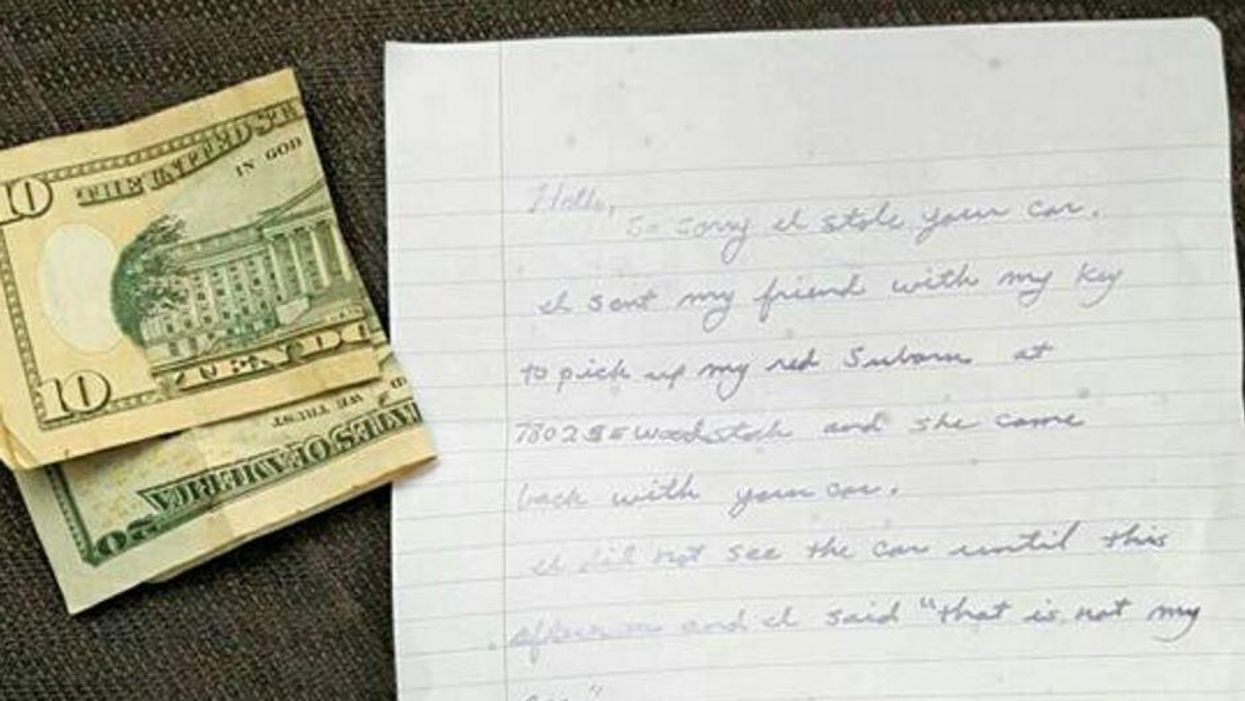 10 THE UNITED STA
IN GOD
10 TEN DO
WE TRUST
TATES OF AMERICA
50
Hello,
So sorry I stole your car.
I sent my friend with my key
to pick up my red Subaru at
7802 SE Woodstock and she came
back with your car.
I did not see the car until this
afternoon and I said "that is not my
car"